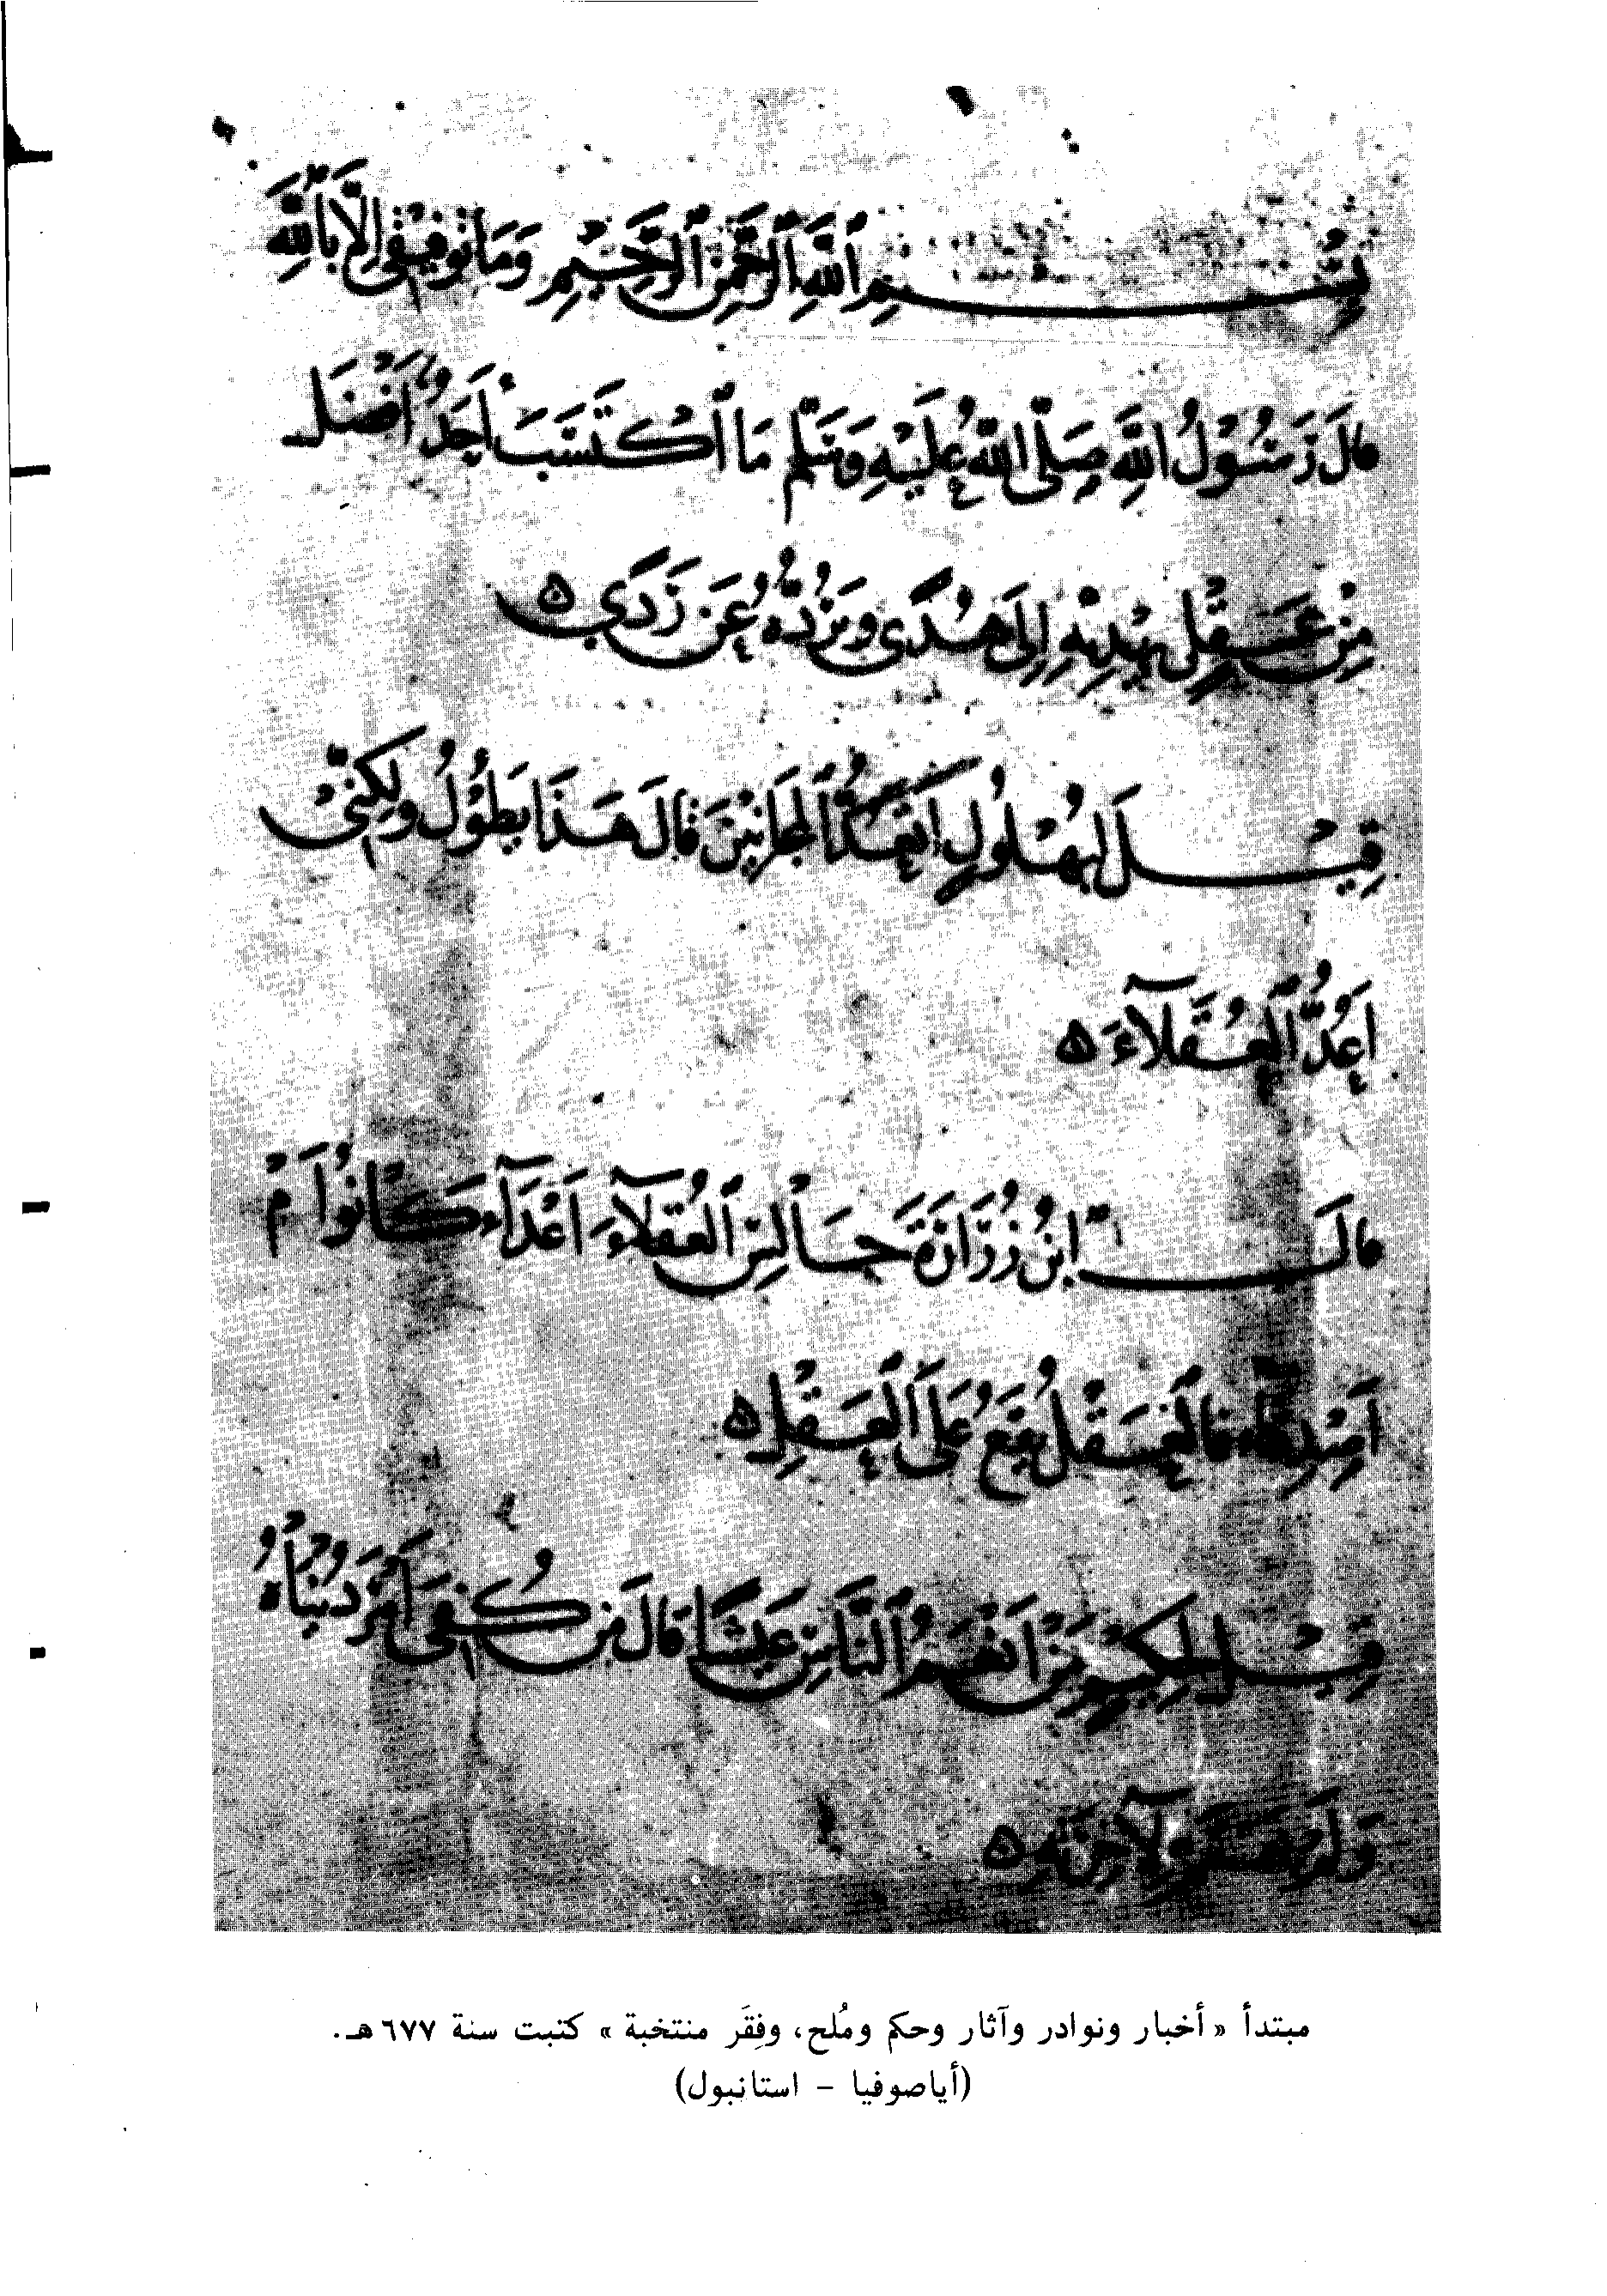 بِسْمِ اللَّهِ الرَّحْمٰنِ الرَّحِيْمِ وَمَا تَوْفِيْقِي إِلَّا بِاللَّهِ
قَالَ رَسُوْلُ اللَّهِ صَلَّى اللَّهُ عَلَيْهِ وَسَلَّمَ مَا اكْتَسَبَ أَحَدٌ أَفْضَلَ
مِنْ عَقْلٍ يَهْدِيْهِ إِلَى هُدًى وَيَرُدُّهُ عَنْ رَدًى ه
قِيْلَ لِبُهْلُولٍ اتَعُدُّ الْمَجَانِيْنَ قَالَ هَذَا يَطُوْلُ وَلَكِنِّيْ
اَعُدُّ الْعُقَلَآءَ ه
قَالَ ابْنُ زُرَارَةَ جَالِسِ الْعُقَلَآءَ اَعْدَآءً كَانُوا اَمْ
اَصْدِقَآءَ فَالْعَقْلُ يَقَعُ عَلَى الْعَقْلِ ه
قِيْلَ لِحَكِيْمٍ مَنْ اَنْعَمُ النَّاسِ عَيْشًا قَالَ مَنْ كُفِيَ اَمْرَ دُنْيَاهُ
وَلَمْ يَهْتَمَّ لِآخِرَتِهِ ه
مبتدأ « أخبار ونوادر وآثار وحكم ومُلح، وفِقَر منتخبة » كتبت سنة ٦٧٧ هـ.
(أياصوفيا - استانبول)